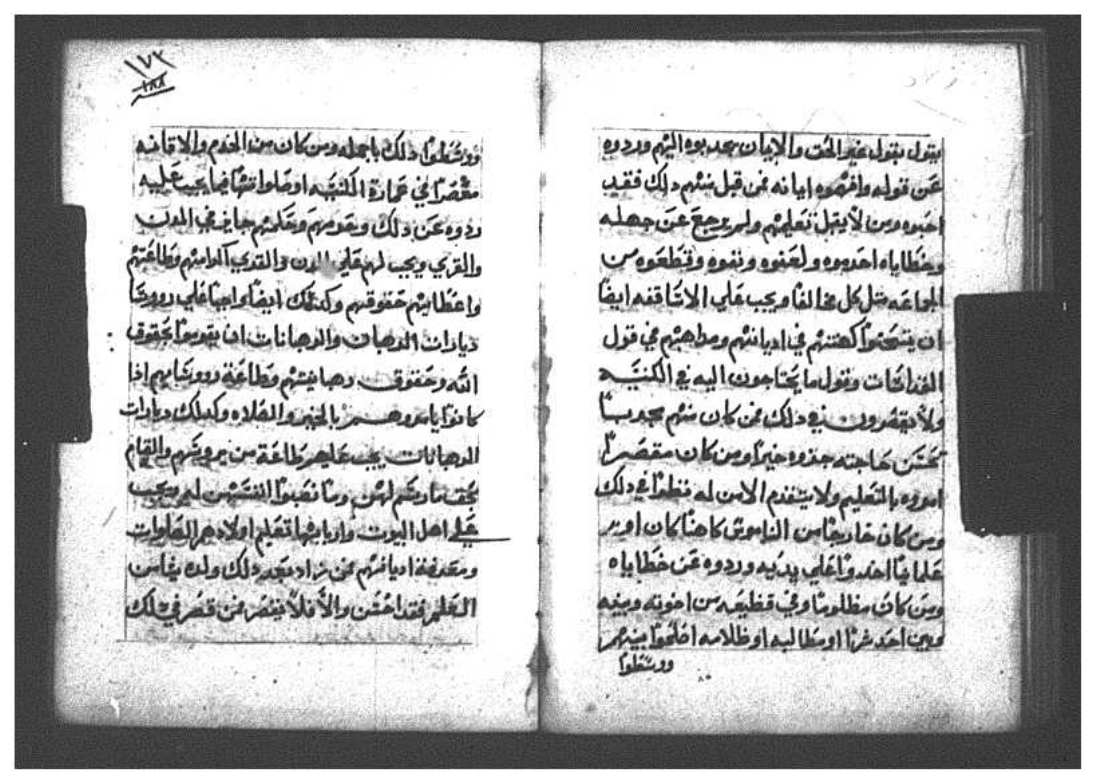 يقول بقول غير الحق والايمان يجدبوه اليهم وردوه
عن قوله وافهموه ايمانه فمن قبل منهم دلك فقد
احبوه ومن لا يقبل تعليمهم ولم يرجع عن جهله
وخطاياه احرموه و لعنوه ونفوه وقطعوه من
الجماعه مثل كل مخالفا ويجب علي الاساقفه ايضا
ان يمتحنوا كهنتهم في اديانتهم ومداهبهم في قول
القداسات وقول ما يحتاجون اليه في الكنيسه
ولا يقصرون في دلك فمن كان منهم
حسن حاجته خيرا ومن كان مقصرا
امروه بالتعليم ولا يتقدم الا من له في دلك
ومن كان خارجا من الناموس كاهنا كان او
علمانيا علي يديه وردوه عن خطاياه
ومن كان مظلوما وفي قطيعه من اخوته وبينه
وبين احد شرا او مطالبه او ظلامه اصلحوا بينهم
ووسطوا
١٧٣
١٨٨
ووسطوا دلك باجمله ومن كان من الخدم والاقامه
مقصرا في عمارة الكنيسه فيما يجب عليه
ردوه عن دلك وحكمهم جايز في المدن
والقري ويجب لهم علي المدن والقري اكرامهم وطاعتهم
واعطايهم حقوقهم وكدلك ايضا واجبا علي رووسا
ديارات الرهبان والرهبانات ان يقوموا بحقوق
الله وحقوق رهبانيتهم وطاعة رووسايهم ادا
كانوا يامروهم بالخير والصلاه وكدلك ديارات
الرهبانات يجب عليهم طاعة من يروسهم والقيام
بحق ما رسم لهن وما نصبوا انفسهن له ويجب
علي اهل البيوت واربابها تعليم اولادهم الصلوات
ومعرفة اديانتهم فمن زاد بعد دلك ولده من
العلم فقد احسن والا فلا يقصر فمن قصر في دلك